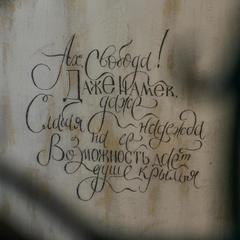 Ах, Свобода!
Даже намек,
даже
Слабая надежда
на ее
Возможность даёт
душе крылья